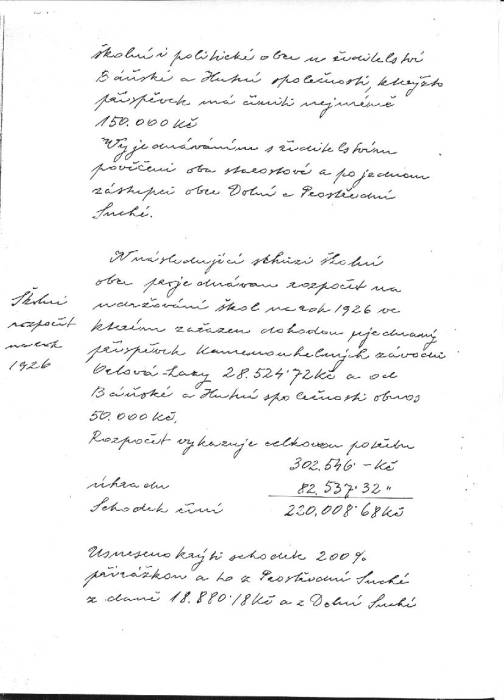 školní i politické obce u ředitelství
Báňské a Hutní společnosti, kterýžto
příspěvek má činiti nejméně
150.000 Kč
Vyjednáváním s ředitelstvím
pověřeni oba starostové a po jednom
zástupci obce Dolní a Prostřední
Suché.
V následující schůzi školní
obce projednávan rozpočet na
udržování škol na rok 1926 ve
kterém zařazen dohodou ujednaný
příspěvek Kamenouhelných závodů
Orlová-Lazy 28.524.72 Kč a od
Báňské a Hutní společnosti obnos
50.000 Kč.
Školní
rozpočet
na rok
1926
Rozpočet vykazuje celkovou potřebu
302.546.- Kč
úhradu 82.537.32 "
Schodek činí 220.008.68 Kč
Usneseno krýti schodek 200%
přirážkou a to z Prostřední Suché
z daně 18.880.18 Kč a z Dolní Suché